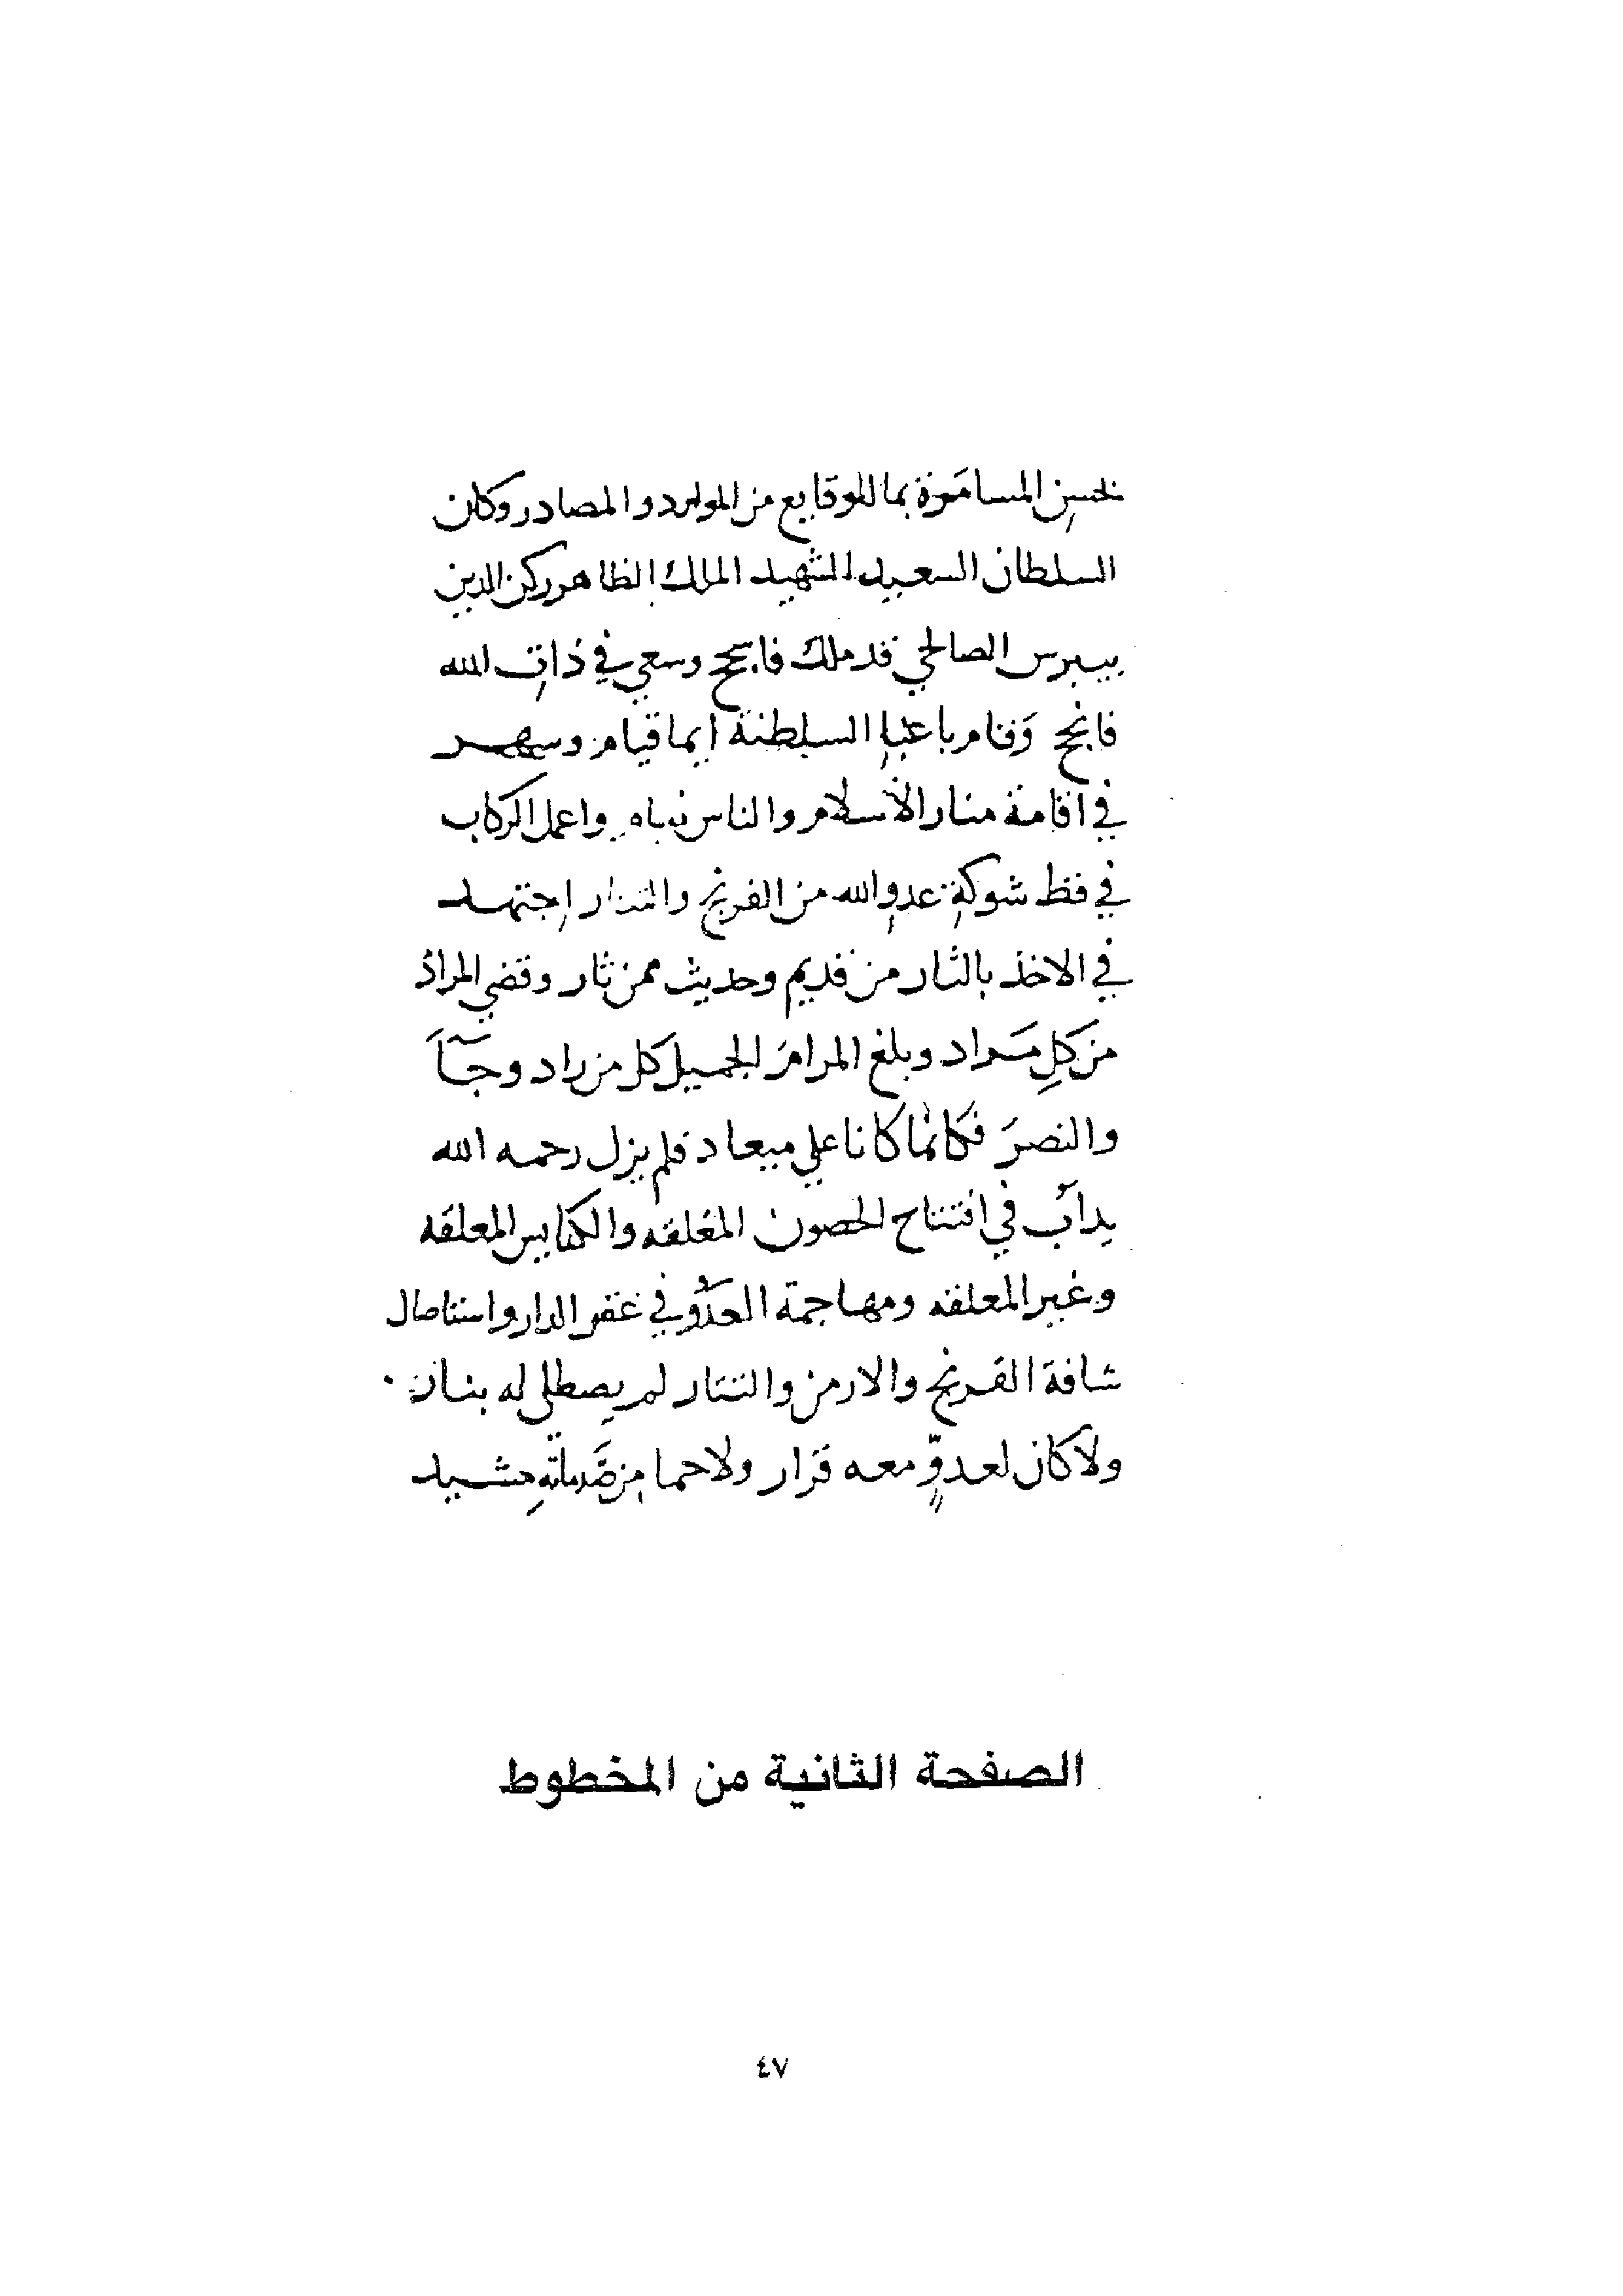 بحسن المسامرة بما للوقايع من الموارد والمصادر وكان
السلطان السعيد الشهيد الملك الظاهر ركن الدين
بيبرس الصالحي قد ملك فاسجح وسعي في ذاتِ الله
فانجح وَقام باعباءِ السلطنة ايما قيام وسهر
في اقامة منار الاسلام والناس نيام واعمل الركاب
في قط شوكةِ عدوِ الله من الفرنج والتتار اِجتهد
في الاخذ بالثار من قديم وحديث ممن ثار وقضي المراد
من كلِ مَراد وبلغ المرامَ الجميل كل من راد وجَآ
والنصرَ فكانما كانا علي ميعاد فلم يزل رحمه الله
يدأب في افتتاح الحصون المغلقه والكنايس المعلقه
وغير المعلقه ومهاجمة العدوّ في عقر الدار واستاصال
شافة الفرنج والارمن والتتار لم يصطلي له بنار
ولا كان لعدوٍّ معه قرار ولا حما من صَدماتهِ مشيد
الصفحة الثانية من المخطوط
٤٧